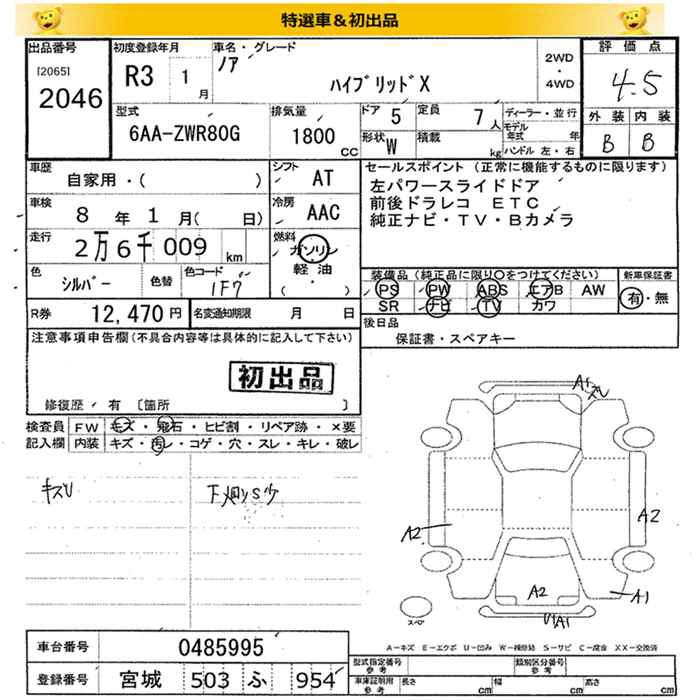 特選車＆初出品
出品番号 初度登録年月 車名・グレード 評価点
[2065] 2046 R3 1月 ノア ハイブリッドX 2WD・4WD 4.5
型式 排気量 ドア 5 定員 7人 ディーラー・並行 外装 内装
6AA-ZWR80G 1800CC 形状 W 積載 kg モデル年式 年 B B
ハンドル 左・右
車歴 自家用・( ) シフト AT セールスポイント（正常に機能するものに限ります）
左パワースライドドア
車検 8年1月(日) 冷房 AAC 前後ドラレコ ETC
純正ナビ・TV・Bカメラ
走行 2万6千009km 燃料 ガソリン 軽油 (・)
色 シルバー 色替 色コード 1F7 装備品（純正品に限り○をつけてください） 新車保証書
PS PW ABS エアB AW 有・無
R券 12,470円 名変通知期限 月 日 SR ナビ TV カワ
後日品 保証書・スペアキー
注意事項申告欄（不具合内容等は具体的に記入して下さい）
初出品
修復歴 有 〔箇所 〕
検査員記入欄 FW キズ・飛石・ヒビ割・リペア跡・×要
内装 キズ・汚レ・コゲ・穴・スレ・キレ・破レ
キズリ 下廻りS少
A1 キズ
A2 A2
A2 A1
A1
スペア
A－キズ E－エクボ U－凹み W－補修跡 S－サビ C－腐食 XX－交換済
車台番号 0485995 型式指定番号 参考 類別区分番号 参考
登録番号 宮城 503 ふ 954 車庫証明用 参考 長さ cm 幅 cm 高さ cm